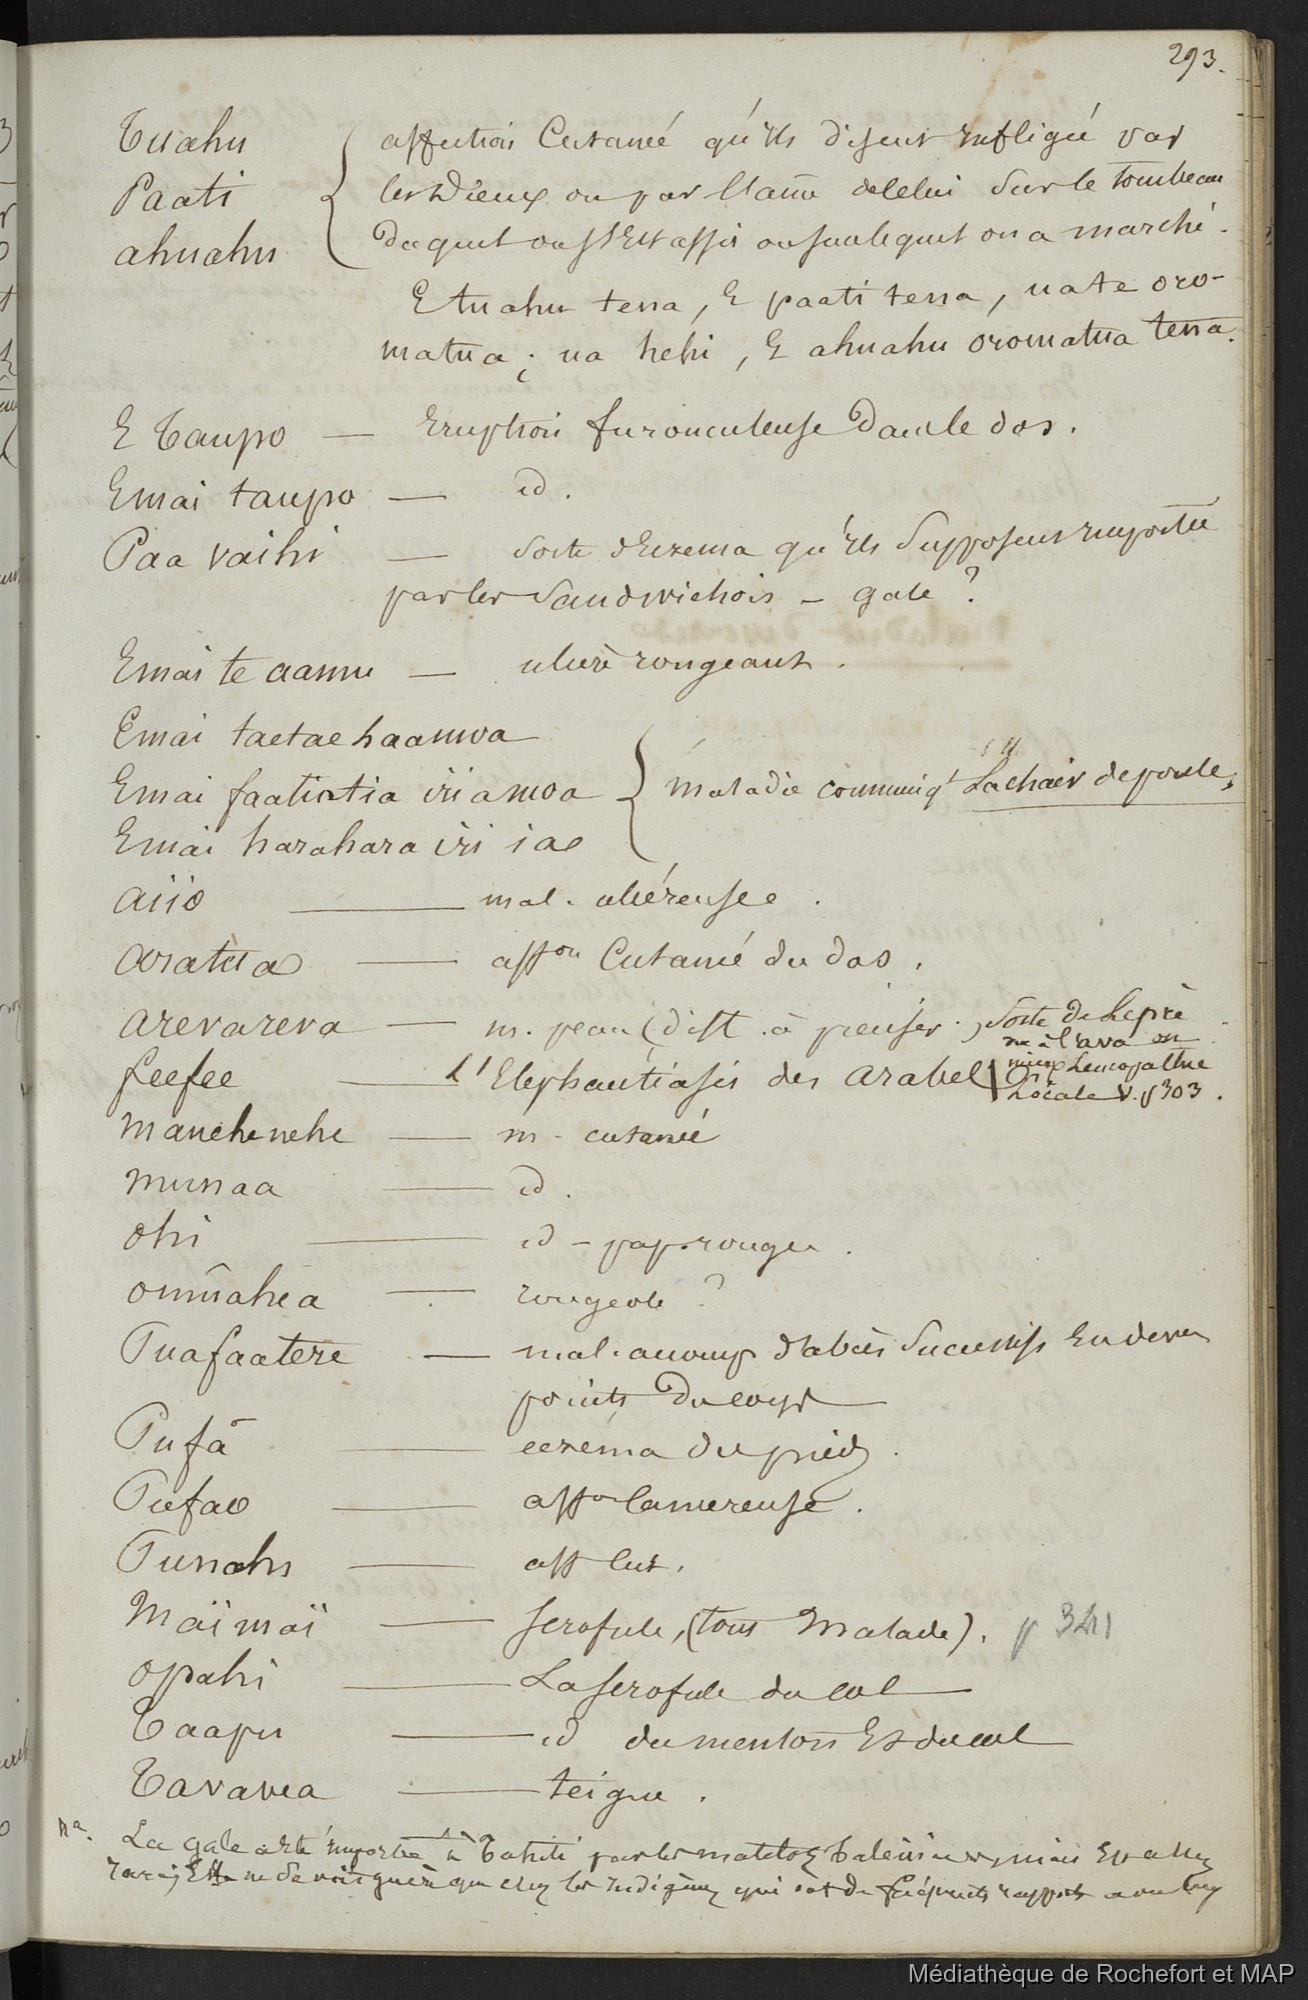 293.
Tuahu
Paati
ahuahu
affection Cutanée qu'ils disent infligée par
les Dieux ou par l'âme de celui sur le tombeau
Duquel on s'Est assis ou sur lequel on a marché.
E tuahu tena, E paati tena, ua te oro-
matua; ua hehi, E ahuahu oromatua tena.
E Taupo — Eruption furonculeuse Dans le dos.
Emai taupo — id.
Paa vaihi — Sorte d'Eczema qu'ils Supposent importée
par les Sandwichois – gale ?
Emai te aamu — ulcère rongeant.
Emai taetae haamoa
Emai faatiatia irii amoa
Emai harahara iri iae
Maladie communiqt La chair de poule,
aiio — mal. ulcéreuse.
aratua — affon Cutanée du dos.
arevareva — m. peau (dist. à preuser.) Sorte de Lèpre
née à l'ava ou
mieux Leucopathie
Locale V. p 303.
feefee — L'Elephantiasis des Arabes
manehenehe — m. cutanée
munaa — id.
ohi — id – pap. rouges.
oumahea — rougeole ?
Puafaatere — mal. aucoup d'abcès Successifs En divers
points Du corps
Pufa — eczéma du pied.
Pufao — affon Cancereuse.
Punahi — aff Cut.
Maïmaï — scrofule, (tous malade). p 341
opahi — La scrofule du col
Taapu — id du menton Et du col
Tavavea — teigne.
Na. La gale a été importée à Tahiti par les matelots baleiniers, mais Est assez
rare; Elle ne se voit guère que chez les indigènes qui ont de fréquents rapports avec eux